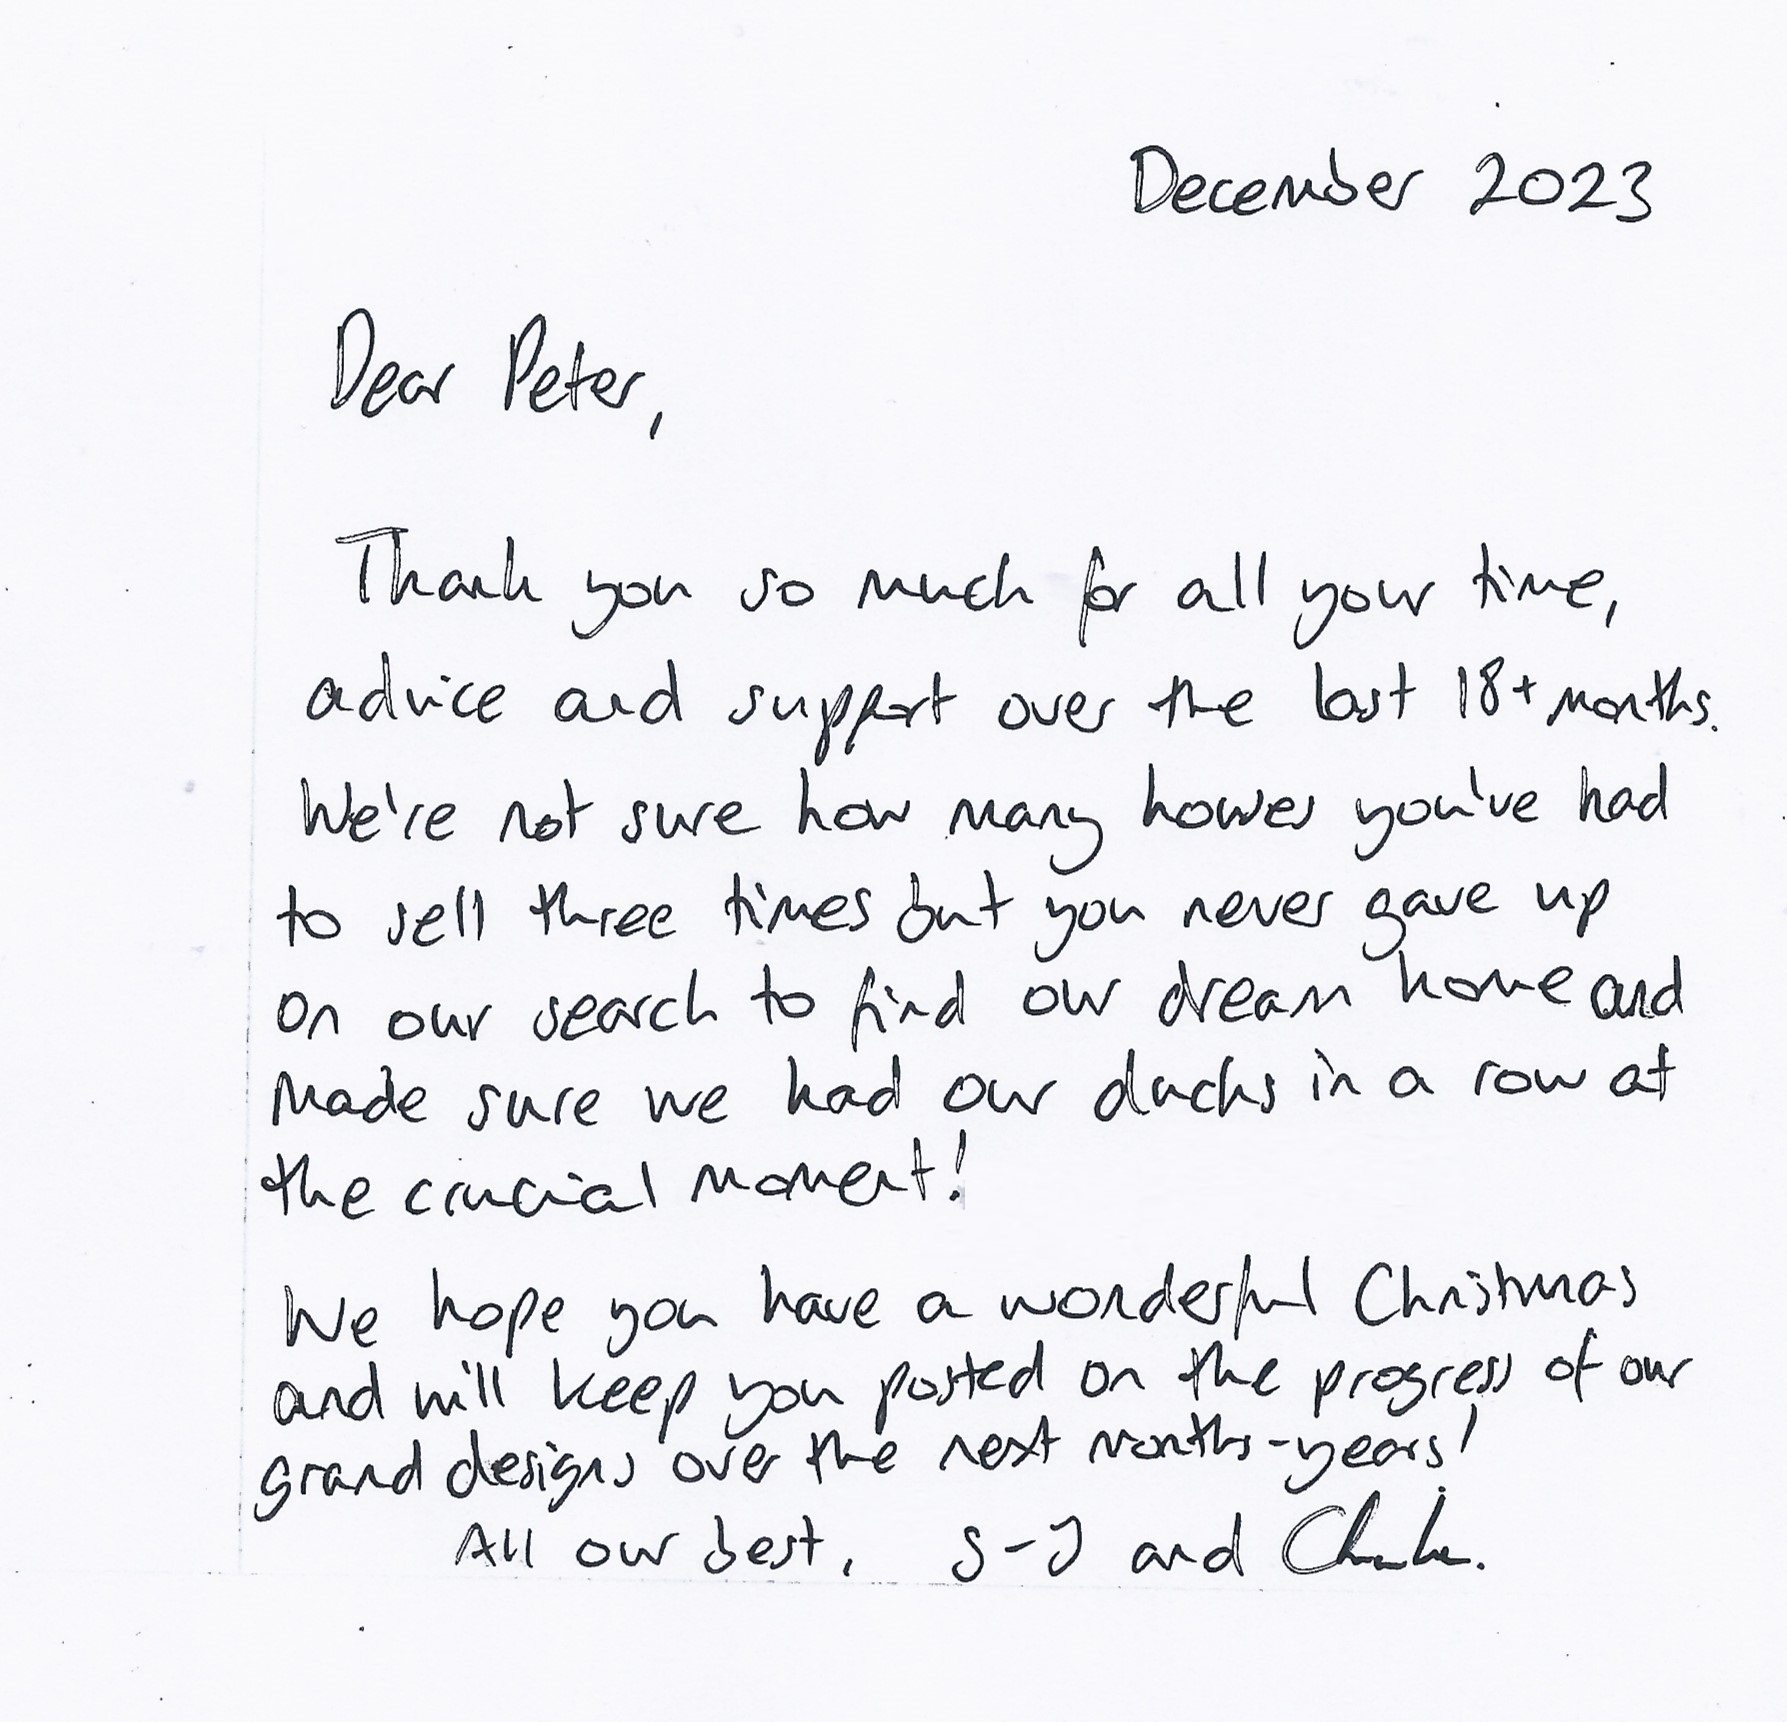 December 2023
Dear Peter,
Thank you so much for all your time,
advice and support over the last 18+ months.
We're not sure how many houses you've had
to sell three times but you never gave up
on our search to find our dream home and
made sure we had our ducks in a row at
the crucial moment!
We hope you have a wonderful Christmas
and will keep you posted on the progress of our
grand designs over the next months-years!
All our best, S-J and